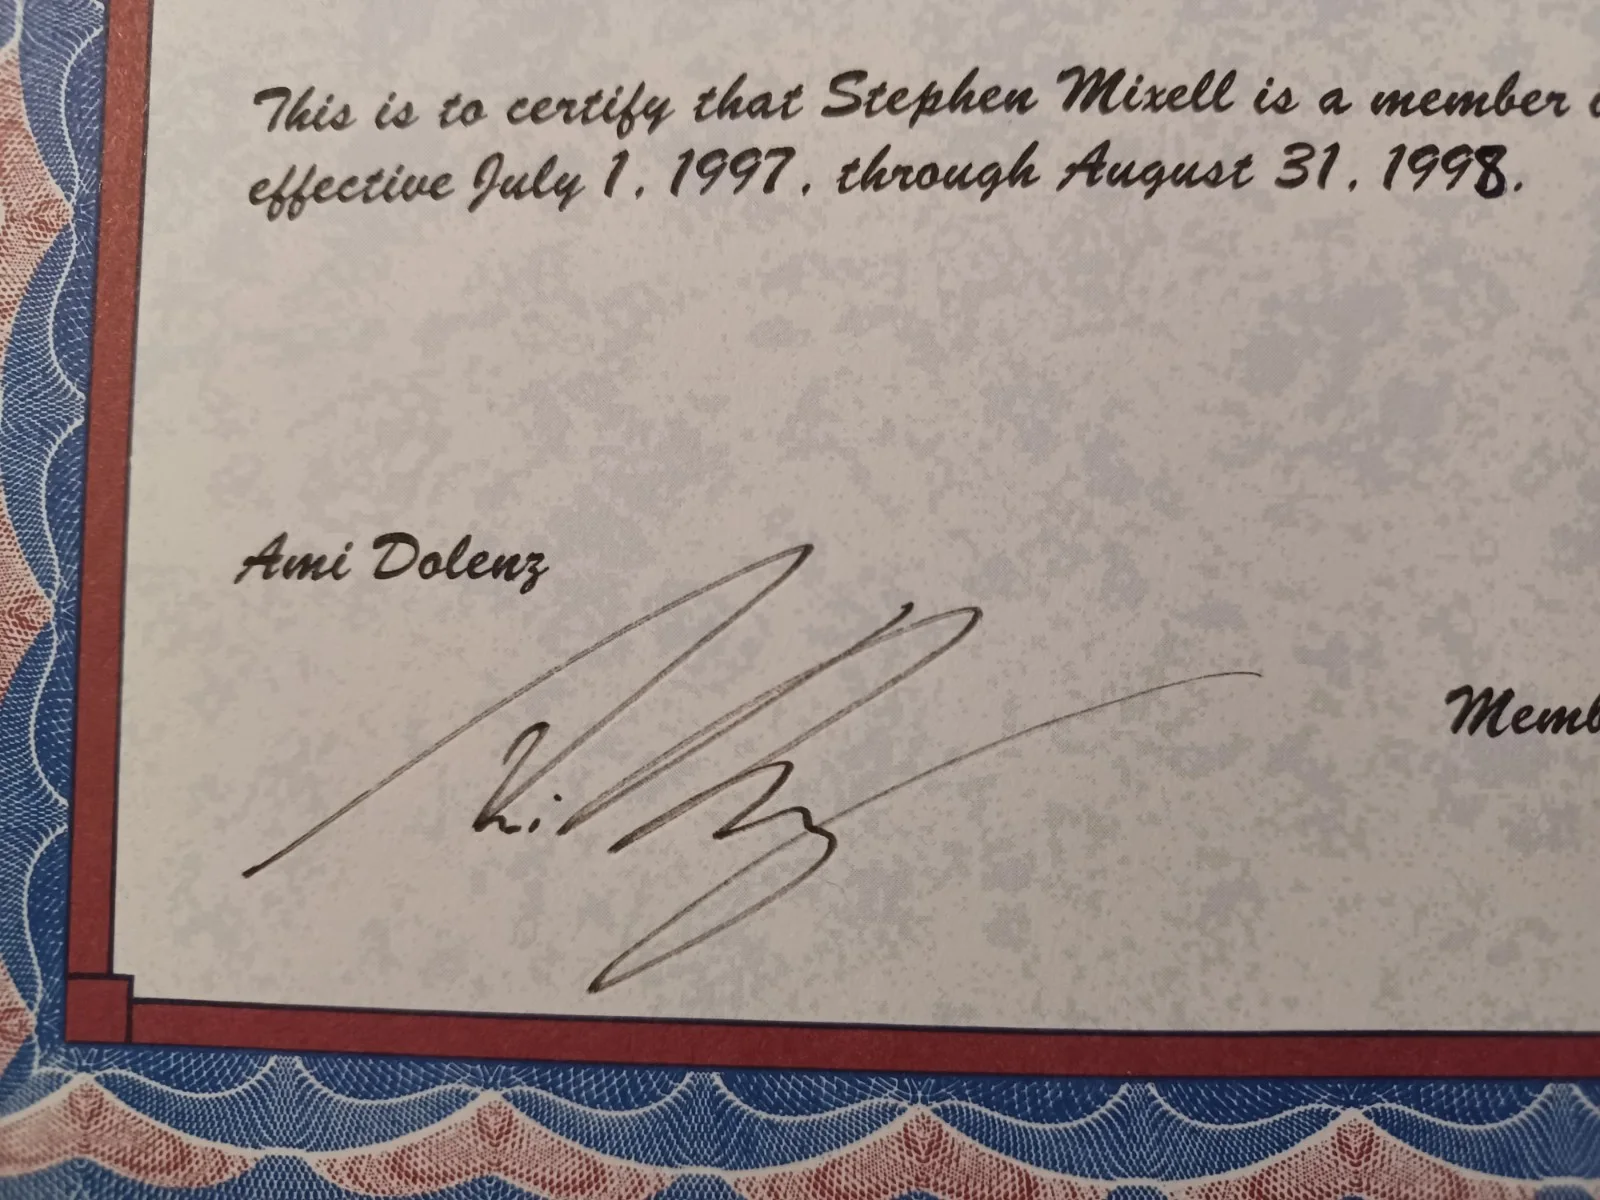 This is to certify that Stephen Mixell is a member
effective July 1, 1997, through August 31, 1998.
Ami Dolenz